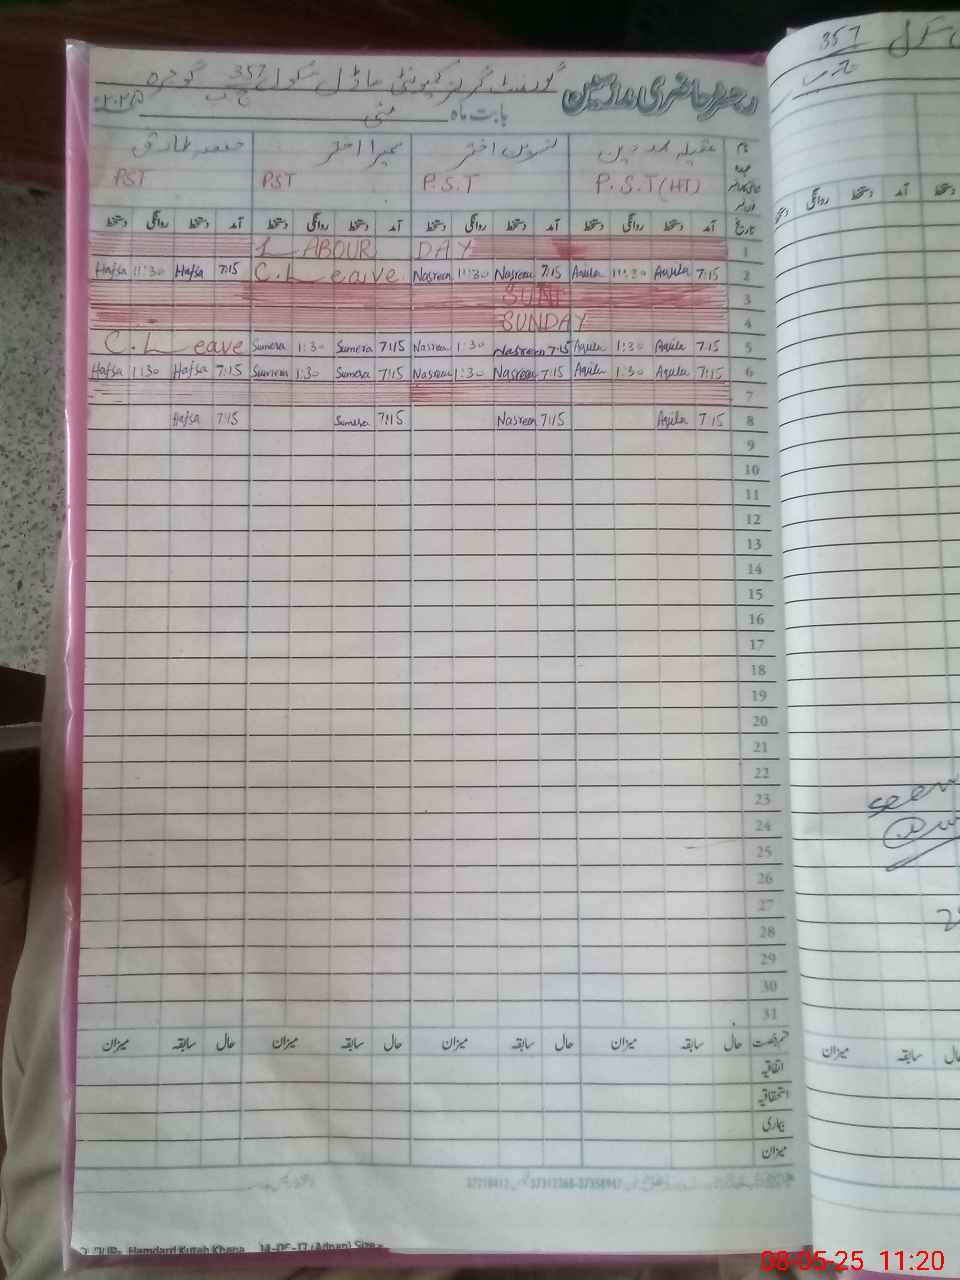 رجسٹر حاضری ملازمین گورنمنٹ گرلز کمیونٹی ماڈل سکول 357 ج ب گوجرہ
بابت ماہ مئی ۲۰۲۵
نام عقیلہ نسرین اختر سمیرا اختر حفصہ طارق
عہدہ P.S.T (HT) P.S.T PST PST
تاریخ آمد دستخط روانگی دستخط آمد دستخط روانگی دستخط آمد دستخط روانگی دستخط آمد دستخط روانگی دستخط
LABOUR DAY 1
Hafsa 11:30 Hafsa 7:15 C.Leave Nasreen 11:30 Nasreen 7:15 Aqila 11:30 Aqila 7:15 2
SUN 3
SUNDAY 4
C.Leave Sumera 1:30 Sumera 7:15 Nasreen 1:30 Nasreen 7:15 Aqila 1:30 Aqila 7:15 5
Hafsa 1:30 Hafsa 7:15 Sumera 1:30 Sumera 7:15 Nasreen 1:30 Nasreen 7:15 Aqila 1:30 Aqila 7:15 6
7
Hafsa 7:15 Sumera 7:15 Nasreen 7:15 Aqila 7:15 8
9
10
11
12
13
14
15
16
17
18
19
20
21
22
23
24
25
26
27
28
29
30
31
قسم رخصت حال سابقہ میزان حال سابقہ میزان حال سابقہ میزان حال سابقہ میزان
اتفاقیہ
استحقاقیہ
بیماری
میزان
Hamdard Kutab Khana
357 سکول
ج ب
دستخط آمد دستخط روانگی
seen
میزان سابقہ حال
08-05-25 11:20